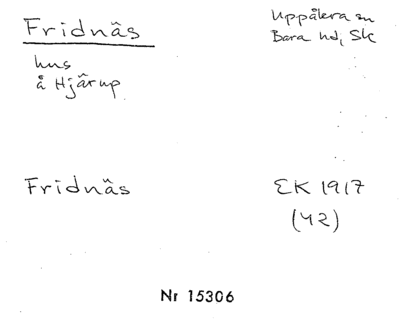 Fridnäs
Uppåkra sn
Bara hd, Sk
hus
å Hjärup
Fridnäs
EK 1917
(42)
Nr 15306